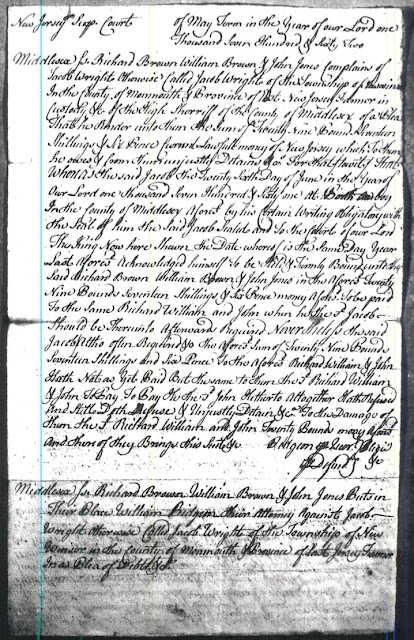 New Jersey Sup. Court of May Term in the Year of our Lord one
Thousand Seven Hundred & Sixty Two
Middlesex Ss Richard Brown William Brown & John Jones Complains of
Jacob Wright Otherwise Called Jacob Wright of the Township of
In the County of Monmouth & Province of New Jersey Farmer in
Custody &c of the High Sherriff of the County of Middlesex of a Plea
That he Render unto them the Sum of Twenty Nine Pounds Seventeen
Shillings & Six Pence Lawful money of New Jersey which To them
he owes & from them unjustly Detains &c For that to wit That
Whereas the said Jacob the Twenty Sixth Day of June in the Year of
Our Lord one Thousand Seven Hundred & Sixty one At Perth Amboy
In the County of Middlesex Afores'd by his Certain Writing Obligatory with
the Seal of him the Said Jacob Sealed and To the Court of our Lord
The King Now here Shewn the Date whereof is the Same Day & Year
Last Afores'd Acknowledged himself To be Held & Firmly Bound unto the
Said Richard Brown William Brown & John Jones in the Afores'd Twenty
Nine Pounds Seventeen Shillings & Six Pence money Afores'd To be paid
To the Same Richard William and John when he the s'd Jacob
Should be Thereunto Afterwards Required Nevertheless the said
Jacob Altho often Required &c the Afores'd Sum of Twenty Nine Pounds
Seventeen Shillings and Six Pence To the Afores'd Richard William & John
Hath Not as Yet Paid But the same to them the s'd Richard William
& John To Pay the s'd Hitherto Altogether Hath Refused
And Still Doth Refuse & Unjustly Detain &c To the Damage of
them the s'd Richard William and John Twenty Pounds money Afores'd
And thereof they Brings this Suit &c
Middlesex Ss Richard Brown William Brown & John Jones Puts in
Their Place William Pidgeon their Attorney Against Jacob
Wright otherwise Called Jacob Wright of the Township of New
Windsor in the County of Monmouth & Province of East Jersey Farmer
In a Plea of Debt &c